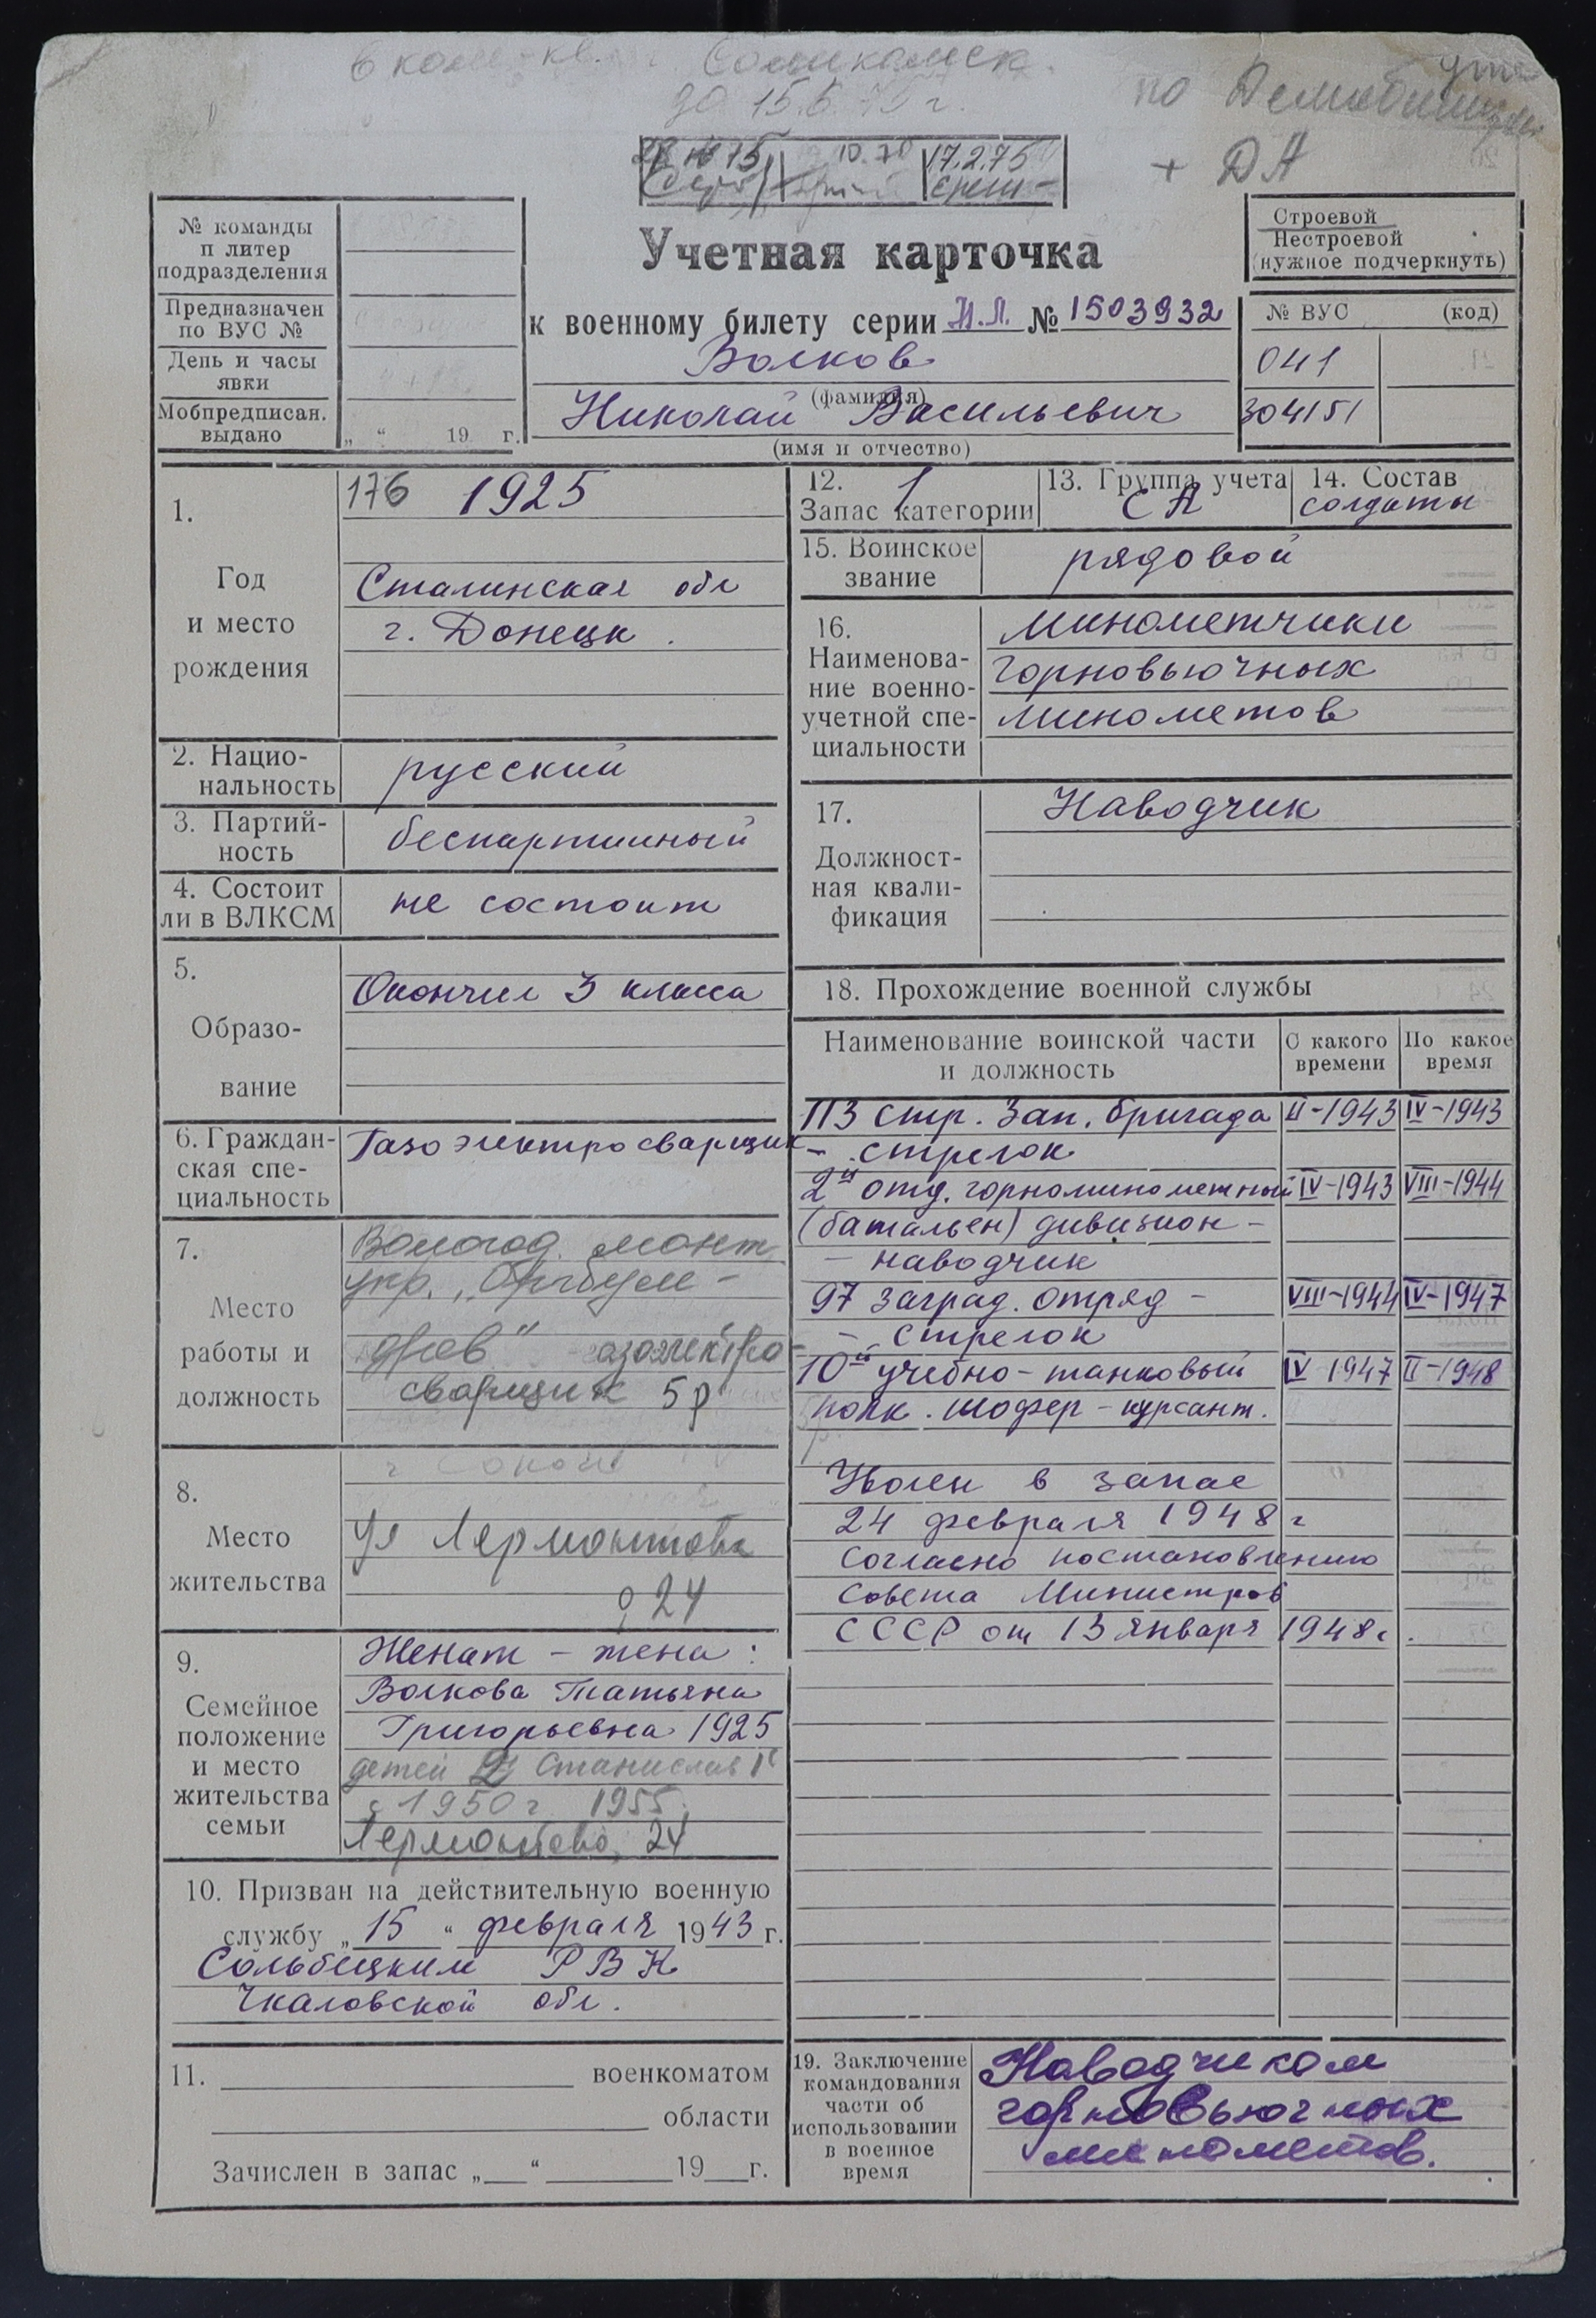 6 ком-кв. г. Соликамск.
до 15.5.75 г.
по Демобилизации
+ ДА
№ 15 10.70 17.2.75
№ команды
п литер
подразделения
Предназначен
по ВУС №
День и часы
явки
Мобпредписан.
выдано
„ “ 19 г.
Учетная карточка
к военному билету серии Н.Л. № 1503932
Волков
(фамилия)
Николай Васильевич
(имя и отчество)
Строевой
Нестроевой
(нужное подчеркнуть)
№ ВУС (код)
041
304151
1.
Год
и место
рождения
176 1925
Сталинская обл
г. Донецк.
2. Нацио-
нальность
русский
3. Партий-
ность
беспартийный
4. Состоит
ли в ВЛКСМ
не состоит
5.
Образо-
вание
Окончил 3 класса
6. Граждан-
ская спе-
циальность
Газоэлектросварщик
7.
Место
работы и
должность
Вологод. монт.
упр.
сварщик 5р
8.
Место
жительства
г Сокол
Ул Лермонтова
24
9.
Семейное
положение
и место
жительства
семьи
Женат – жена:
Волкова Татьяна
Григорьевна 1925
детей 2 Станислав
с 1950 г 1955
Лермонтова, 24
10. Призван на действительную военную
службу „15“ февраля 1943 г.
Сольбецким РВК
Чкаловской обл.
11. военкоматом
области
Зачислен в запас „ “ 19 г.
12. 1
Запас категории
13. Группа учета
СА
14. Состав
солдаты
15. Воинское
звание
рядовой
16.
Наименова-
ние военно-
учетной спе-
циальности
минометчики
горновьючных
минометов
17.
Должност-
ная квали-
фикация
Наводчик
18. Прохождение военной службы
Наименование воинской части
и должность
С какого
времени
По какое
время
113 стр. Зап. бригада II-1943 IV-1943
– стрелок
2й отд. горноминометный IV-1943 VIII-1944
(батальен) дивизион –
– наводчик
97 заград. отряд – VIII-1944 IV-1947
– стрелок
10й учебно-танковый IV 1947 II-1948
полк. шофер – курсант.
Уволен в запас
24 февраля 1948 г
Согласно постановлению
Совета Министров
СССР от 13 января 1948 г.
19. Заключение
командования
части об
использовании
в военное
время
Наводчиком
горновьючных
минометов.